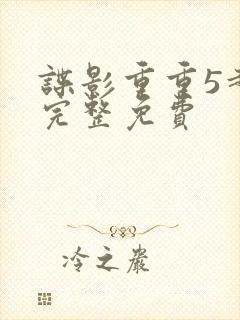 諜影重重5
完整免費
冷之嚴